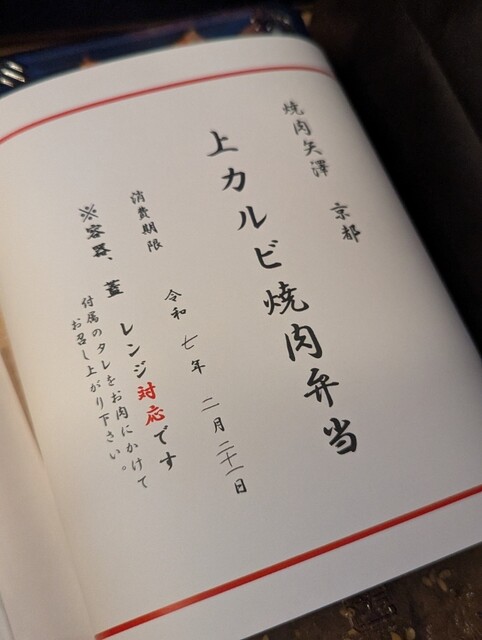 焼肉矢澤 京都
上カルビ焼肉弁当
消費期限 令和七年 二月二十一日
※容器、蓋 レンジ対応です
付属のタレをお肉にかけて
お召し上がり下さい。